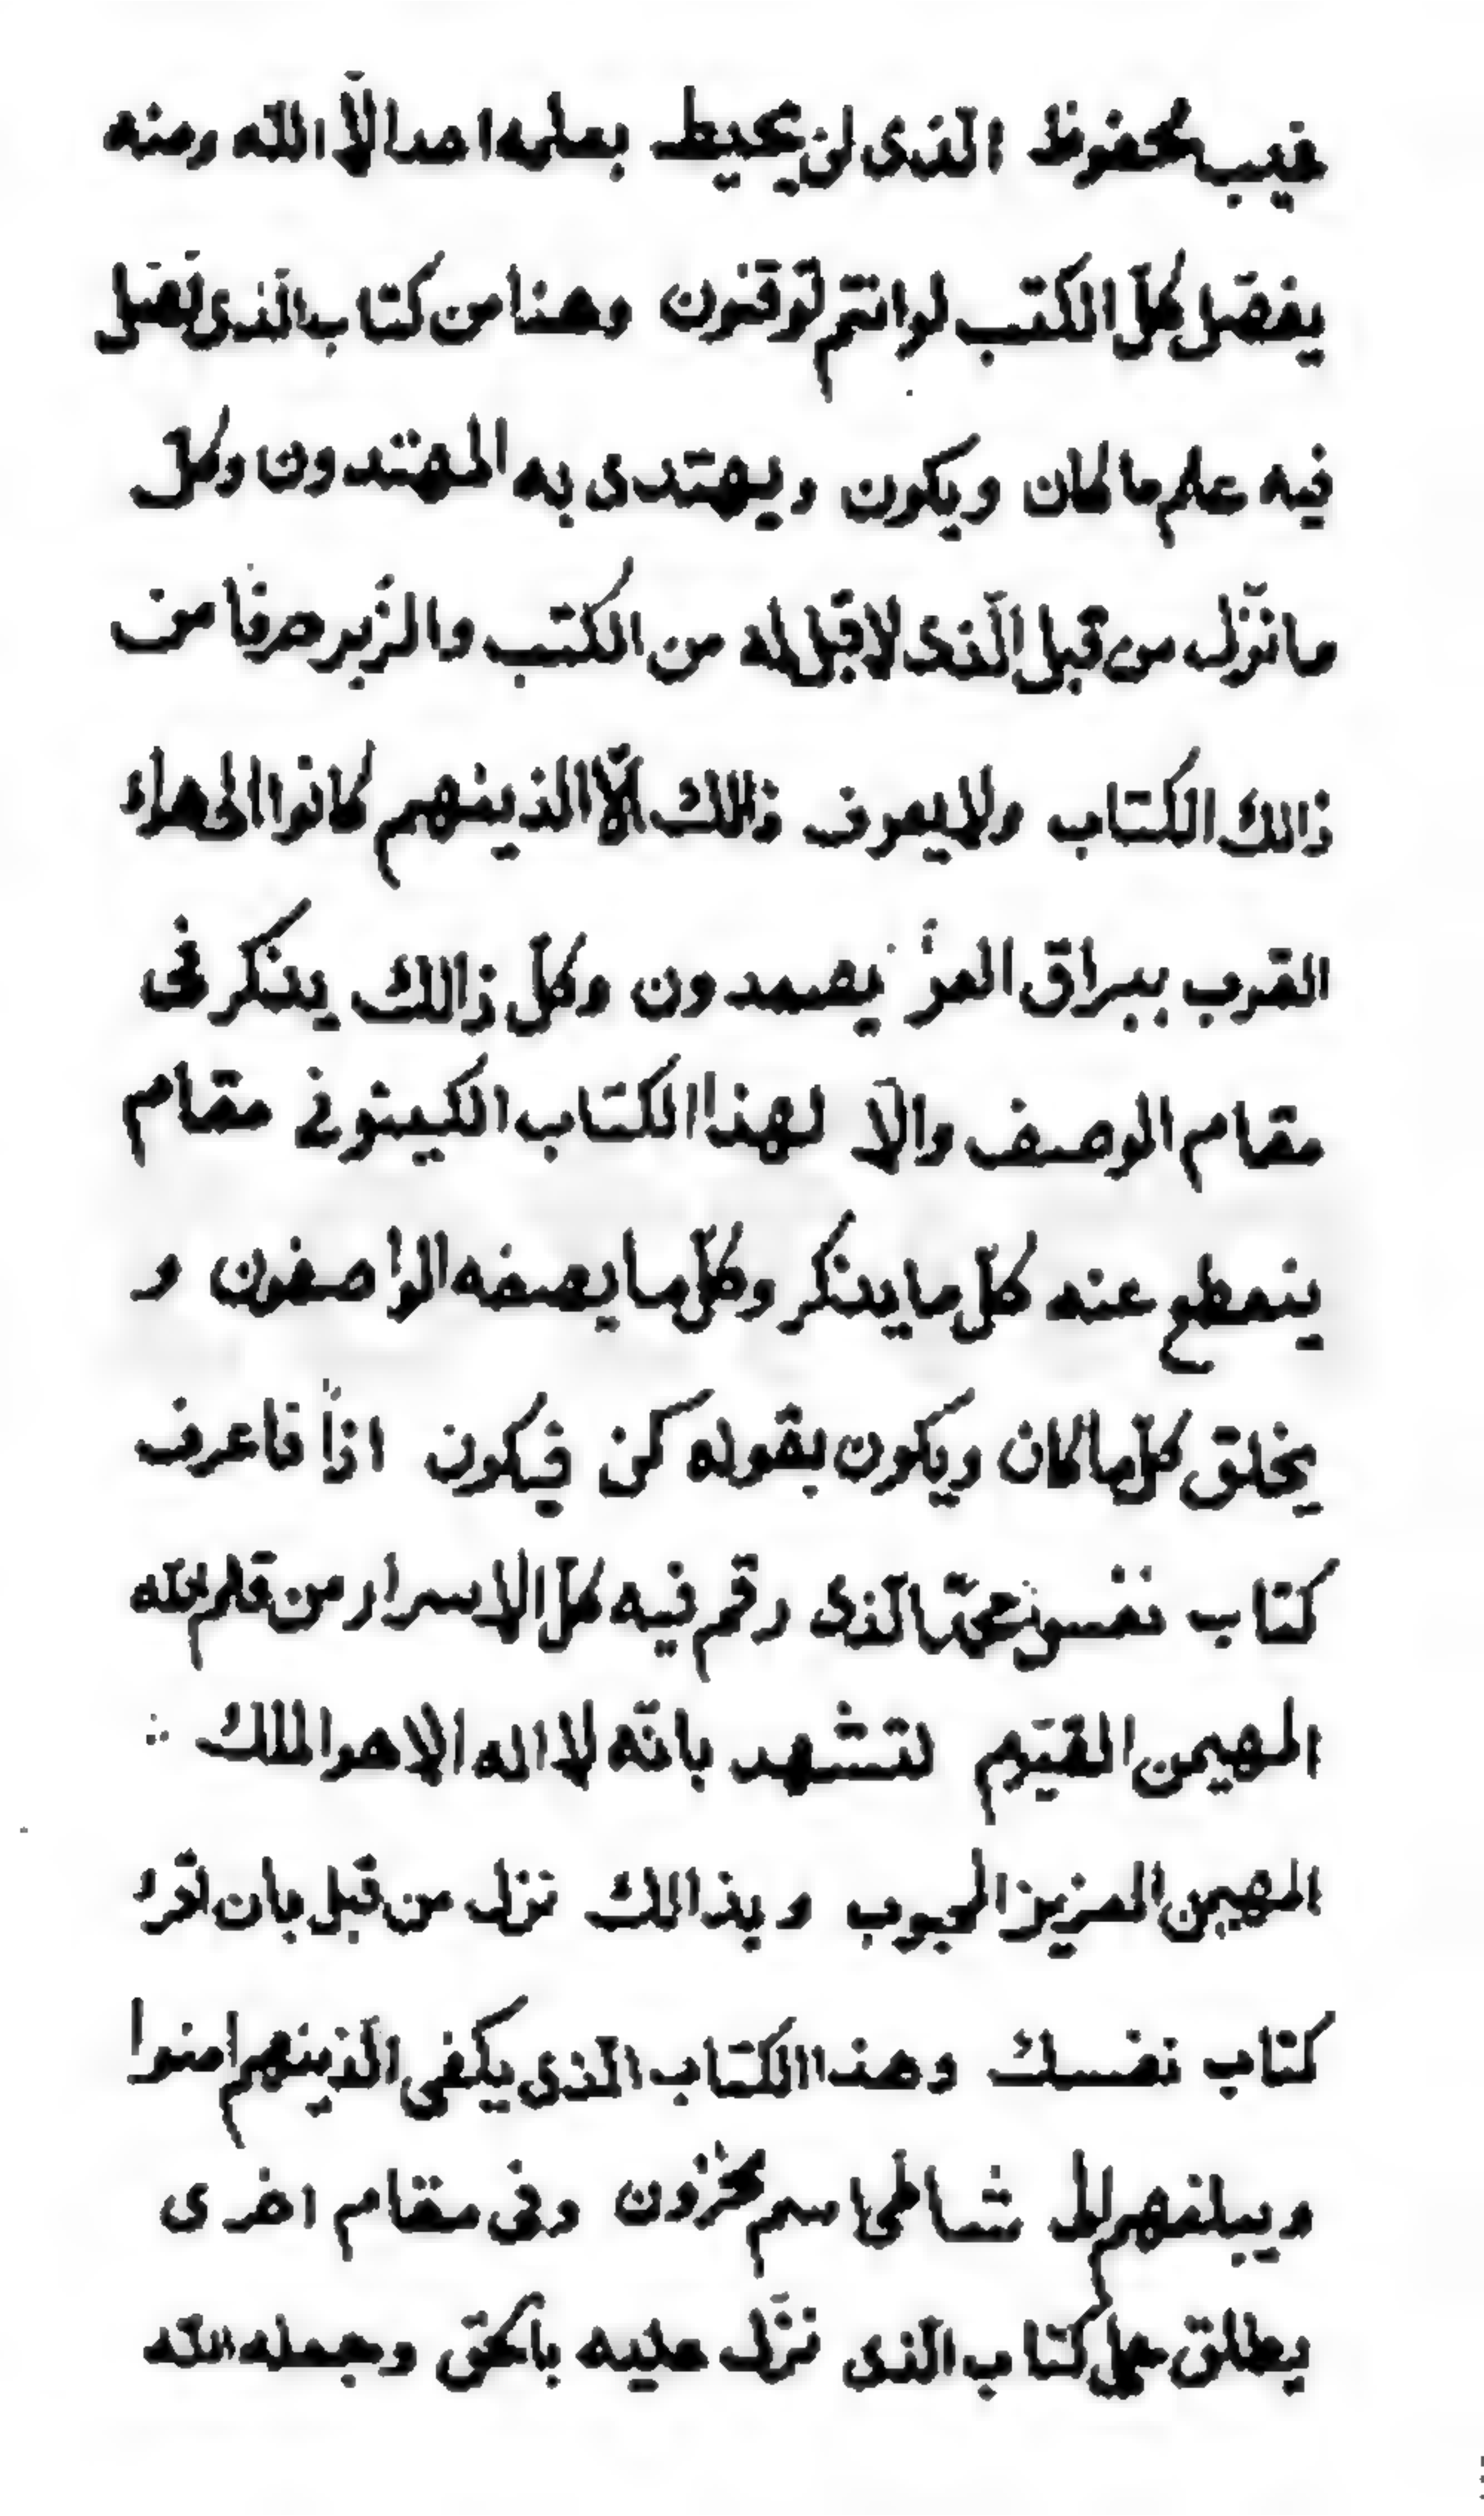 غيب محفوظ الذی لن يحيط بعلمه احد الّا الله ومنه
يفصّل كلّ الكتب لو انتم توقنون وهذا من كتاب الّذی فصّل
فيه علم ما كان ويكون ويهتدی به المهتدون وكلّ
ما نزّل من قبل الّذی لا قبل له من الكتب والزّبر حرفا من
ذالك الكتاب ولا يعرف ذالك الّا الذينهم كانوا الی هواء
القرب ببراق العزّ يصعدون وكلّ ذالك يذكر فی
مقام الوصف والّا لهذا الكتاب الكينونی مقام
ينقطع عنه كلّ ما يذكر وكلّ ما يصفه الواصفون و
يخلق كلّ ما كان ويكون بقوله كن فيكون اذاً فاعرف
كتاب نفس الّذی رقم فيه كلّ الاسرار من قلم الله
المهيمن القيّوم لتشهد بانّه لا اله الا هو الملك
المهيمن العزيز المحبوب وبذالك نزل من قبل بان اقرء
كتاب نفسك وهذا الكتاب الّذی يكفی الّذينهم امنوا
ويبلغهم الی شاطی اسم مخزون وفی مقام اخری
يطلق علی كتاب الّذی نزّل عليه بالحقّ وجعله الله